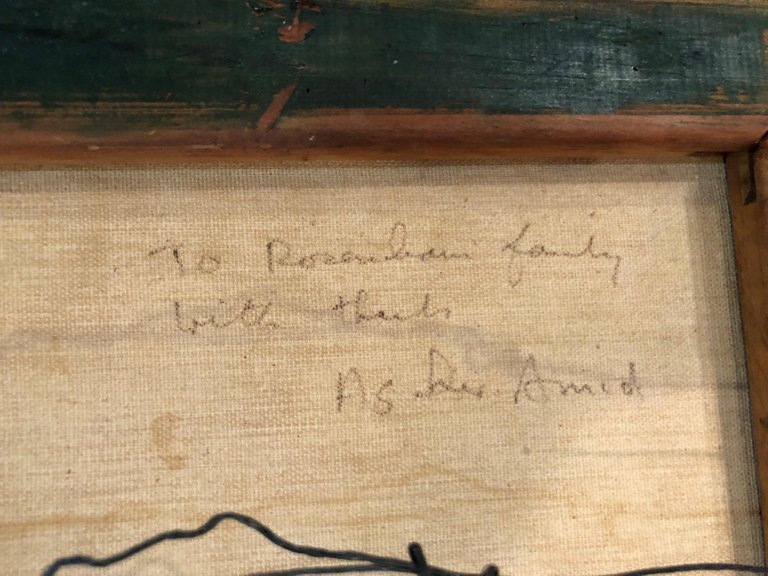 To Rosenbaum family
with thanks
Asher Amid